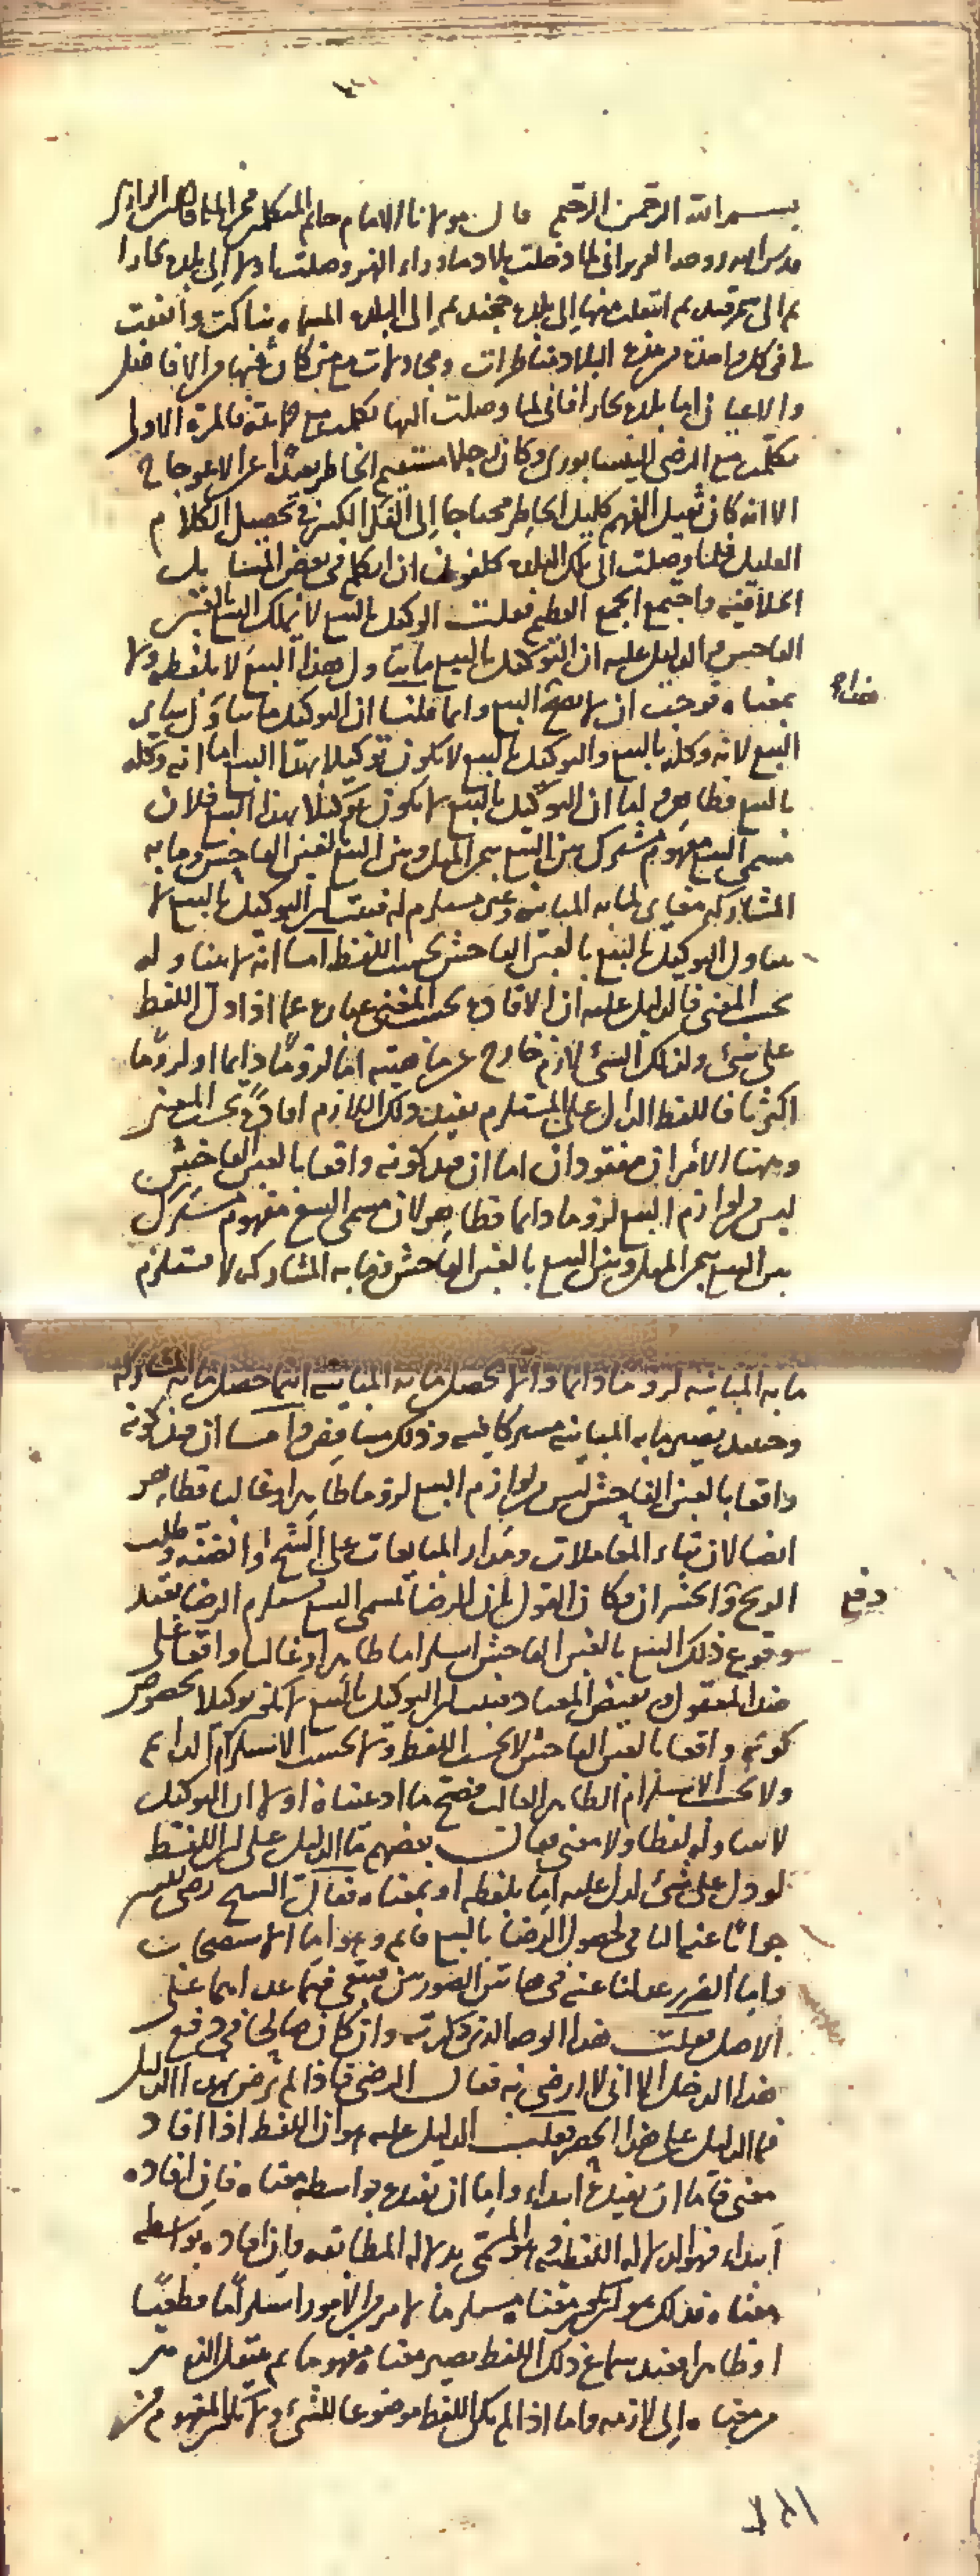 بسم الله الرحمن الرحيم قال مولانا الامام خاتم المتكلمين فخر الدين الرازى
قدس الله روحه العزيز انى لما دخلت بلاد ما وراء النهر وصلت اولا الى بلدة بخارا
ثم الى سمرقند ثم انتقلت منها الى بلدة خجند ثم الى البلدة المسماة بناكت واتفقت
لى فى كل واحدة من هذه البلاد مناظرات ومجادلات مع من كان فيها من الافاضل
والاعيان اما بلدة بخارا فانى لما وصلت اليها تكلمت مع جماعة فالمرة الاولى
تكلمت مع الرضى النيسابورى وكان رجلا مستقيم الخاطر بعيدا عن الاعوجاج
الا انه كان ثقيل الفهم كليل الخاطر محتاجا الى الفكر الكثير فى تحصيل الكلام
القليل فلما وصلت الى تلك البلدة كلفونى ان اتكلم فى بعض المسايل
الخلافية واجتمع الجمع العظيم فقلت الوكيل بالبيع لا يملك البيع بالغبن
الفاحش والدليل عليه ان التوكيل بالبيع ما يتناول هذا البيع لا بلفظه ولا
بمعناه فوجب ان لا يصح هذا البيع وانما قلنا ان التوكيل ما يتناول
البيع لانه وكله بالبيع والتوكيل بالبيع لا يكون توكيلا بهذا البيع اما انه وكله
بالبيع فظاهر واما ان التوكيل بالبيع لا يكون توكيلا بهذا البيع فلان
مسمى البيع مفهوم مشترك بين البيع بثمن المثل وبين البيع بالغبن الفاحش وما به
المشاركة مغاير لما به المباينة وغير مستلزم له فثبت ان التوكيل بالبيع لا
يتناول التوكيل بالبيع بالغبن الفاحش بحسب اللفظ اما انه لا يتناوله
بحسب المعنى فالدليل عليه ان الافادة بحسب المعنى عبارة عما اذا دل اللفظ
على شئ ولذلك الشئ لازم خارج عن ماهيته اما لزوما دايما او لزوما
اكثريا فاللفظ الدال على المستلزم يفيد ذلك اللازم افادة بحسب المعنى
وههنا الامران مفقودان اما ان قيد كونه واقعا بالغبن الفاحش
ليس من لوازم البيع لزوما دايما فظاهر لان مسمى البيع مفهوم مشترك
بين البيع بثمن المثل وبين البيع بالغبن الفاحش وما به المشاركة لا يستلزم
ما به المباينة لزوما دايما والا لحصل ما به المباينة اينما حصل ما به المشاركة
وحينئذ يصير ما به المباينة مشتركا فيه وذلك متناقض واما ان قيد كونه
واقعا بالغبن الفاحش ليس من لوازم البيع لزوما ظاهرا وغالبا فظاهر
ايضا لان بناء المعاملات ومدار المبايعات على الشح والضنة وطلب
الربح والخسران فكان القول بان الرضا بمسمى البيع يستلزم الرضا بقيد
وقوع ذلك البيع بالغبن الفاحش استلزاما ظاهرا وغالبا واقعا على
ضد المعقول ونقيض المعتاد فثبت ان التوكيل بالبيع لا يكون توكيلا بخصوص
كونه واقعا بالغبن الفاحش لا بحسب اللفظ ولا بحسب الاستلزام الدايم
ولا بحسب الاستلزام الظاهر الغالب فصح ما ادعيناه اولا ان التوكيل
لا يتناوله لفظا ولا معنى فقال بعضهم ما الدليل على ان اللفظ
لو دل على شئ لدل عليه اما بلفظه او بمعناه فقال الشيخ رضى الله عنه
جوابا عنه النافى لحصول الرضا بالبيع قائم وهو اما الاستصحاب
واما الضرر عدلنا عنه فى هاتين الصورتين فيبقى فيما عداهما على
الاصل فقلت هذا الوجه الذى ذكرته وان كان صالحا فى دفع
هذا الدخل الا انى لا ارضى به فقال الرضى فاذا لم ترض بهذا الدليل
فما الدليل على هذا الحصر فقلت الدليل عليه هو ان اللفظ اذا افاد
معنى فاما ان يفيده ابتداء واما ان يفيده بواسطة معناه فان افاده
ابتداء فهو الدلالة اللفظية وهو المسمى بدلالة المطابقة وان افاده بواسطة
معناه فذلك هو ان يكون معناه مستلزما لامر من الامور استلزاما قطعيا
او ظاهرا فعند سماع ذلك اللفظ يصير معناه مفهوما ثم ينتقل الذهن
من معناه الى لازمه واما اذا لم يكن اللفظ موضوعا للشئ ولا يكون المفهوم من
هذا
دفع